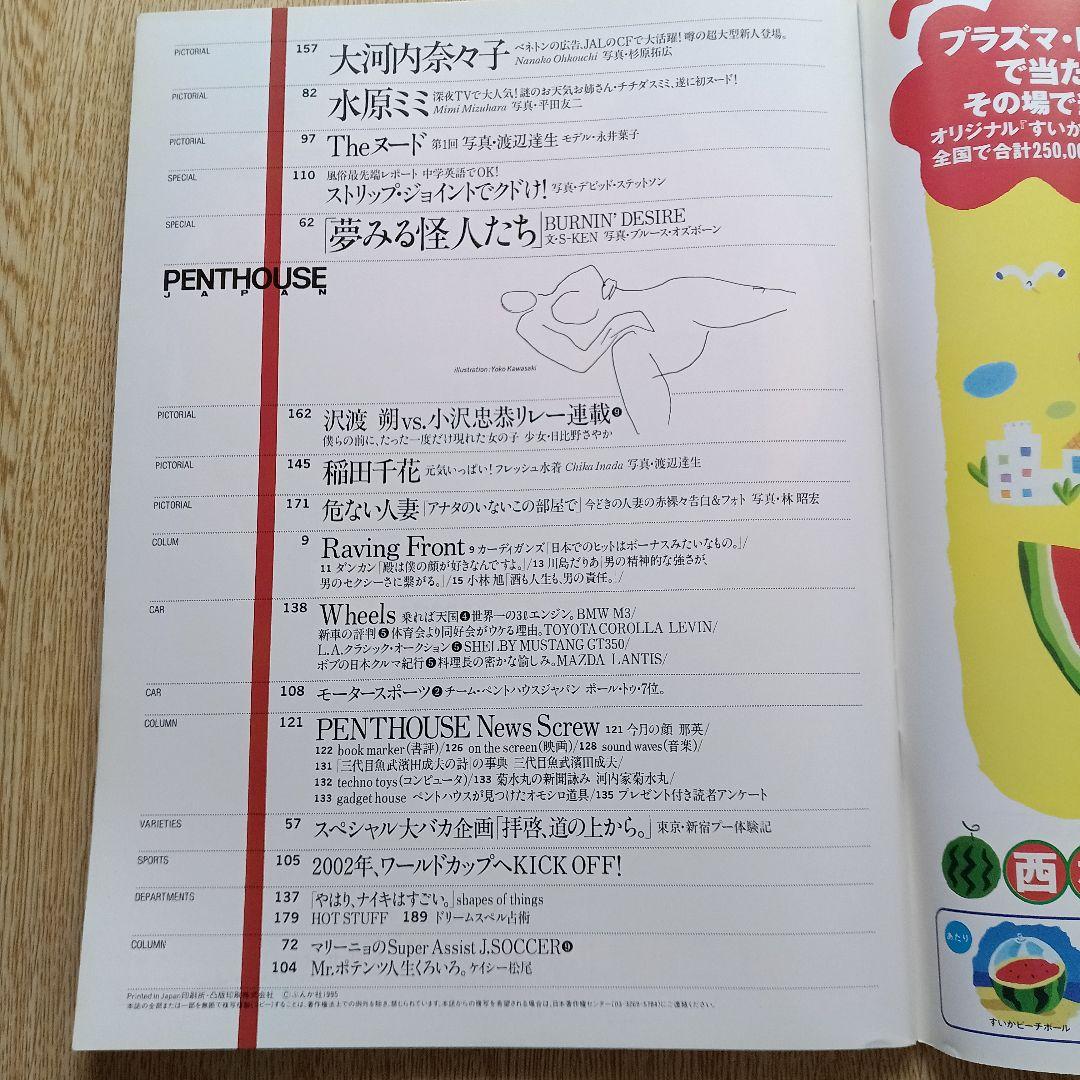 PICTORIAL 157 大河内奈々子 ベネトンの広告、JALのCFで大活躍! 噂の超大型新人登場。
Nanako Ohkouchi 写真・杉原拓広
PICTORIAL 82 水原ミミ 深夜TVで大人気! 謎のお天気お姉さん・チチダスミミ、遂に初ヌード!
Mimi Mizuhara 写真・平田友二
PICTORIAL 97 Theヌード 第1回 写真・渡辺達生 モデル・永井葉子
SPECIAL 110 風俗最先端レポート 中学英語でOK!
ストリップ・ジョイントでクドけ! 写真・デビッド・ステットソン
SPECIAL 62 「夢みる怪人たち」 BURNIN' DESIRE
文・S-KEN 写真・ブルース・オズボーン
PENTHOUSE
JAPAN
illustration: Yoko Kawasaki
PICTORIAL 162 沢渡 朔vs.小沢忠恭リレー連載❾
僕らの前に、たった一度だけ現れた女の子 少女・日比野さやか
PICTORIAL 145 稲田千花 元気いっぱい! フレッシュ水着 Chika Inada 写真・渡辺達生
PICTORIAL 171 危ない人妻 「アナタのいないこの部屋で」 今どきの人妻の赤裸々告白&フォト 写真・林 昭宏
COLUM 9 Raving Front 9 カーディガンズ「日本でのヒットはボーナスみたいなもの。」/
11 ダンカン「殿は僕の顔が好きなんですよ。」/13 川島だりあ「男の精神的な強さが、
男のセクシーさに繋がる。」/15 小林 旭「酒も人生も、男の責任。/
CAR 138 Wheels 乗れば天国❹世界一の3ℓエンジン。BMW M3/
新車の評判❺体育会より同好会がウケる理由。TOYOTA COROLLA LEVIN/
L.A.クラシック・オークション❺SHELBY MUSTANG GT350/
ボブの日本クルマ紀行❺料理長の密かな愉しみ。MAZDA LANTIS/
CAR 108 モータースポーツ❷ チーム・ペントハウスジャパン ポール・トゥ・7位。
COLUMN 121 PENTHOUSE News Screw 121 今月の顔 那英/
122 book marker(書評)/126 on the screen(映画)/128 sound waves(音楽)/
131 「三代目魚武濱田成夫の詩」の事典 三代目魚武濱田成夫/
132 techno toys(コンピュータ)/133 菊水丸の新聞詠み 河内家菊水丸/
133 gadget house ペントハウスが見つけたオモシロ道具/135 プレゼント付き読者アンケート
VARIETIES 57 スペシャル大バカ企画「拝啓、道の上から。」 東京・新宿プー体験記
SPORTS 105 2002年、ワールドカップへKICK OFF!
DEPARTMENTS 137 「やはり、ナイキはすごい。」shapes of things
179 HOT STUFF 189 ドリームスペル占術
COLUMN 72 マリーニョのSuper Assist J.SOCCER❾
104 Mr.ポテンツ人生くろいろ。ケイシー松尾
Printed in Japan 印刷所・凸版印刷株式会社 ©ぶんか社1995
本誌の全部または一部を無断で複写複製(コピー)することは、著作権法上での例外を除き、禁じられています。本誌からの複写を希望される場合は、日本著作権センター(03-3269-5784)にご連絡ください。
プラズマ・
で当た
その場で
オリジナル『すいか
全国で合計250,00
西
あたり
すいかビーチボール